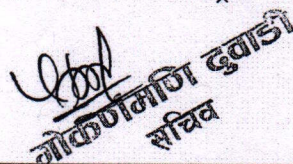 गोकर्णमणि दुवाडी
सचिव